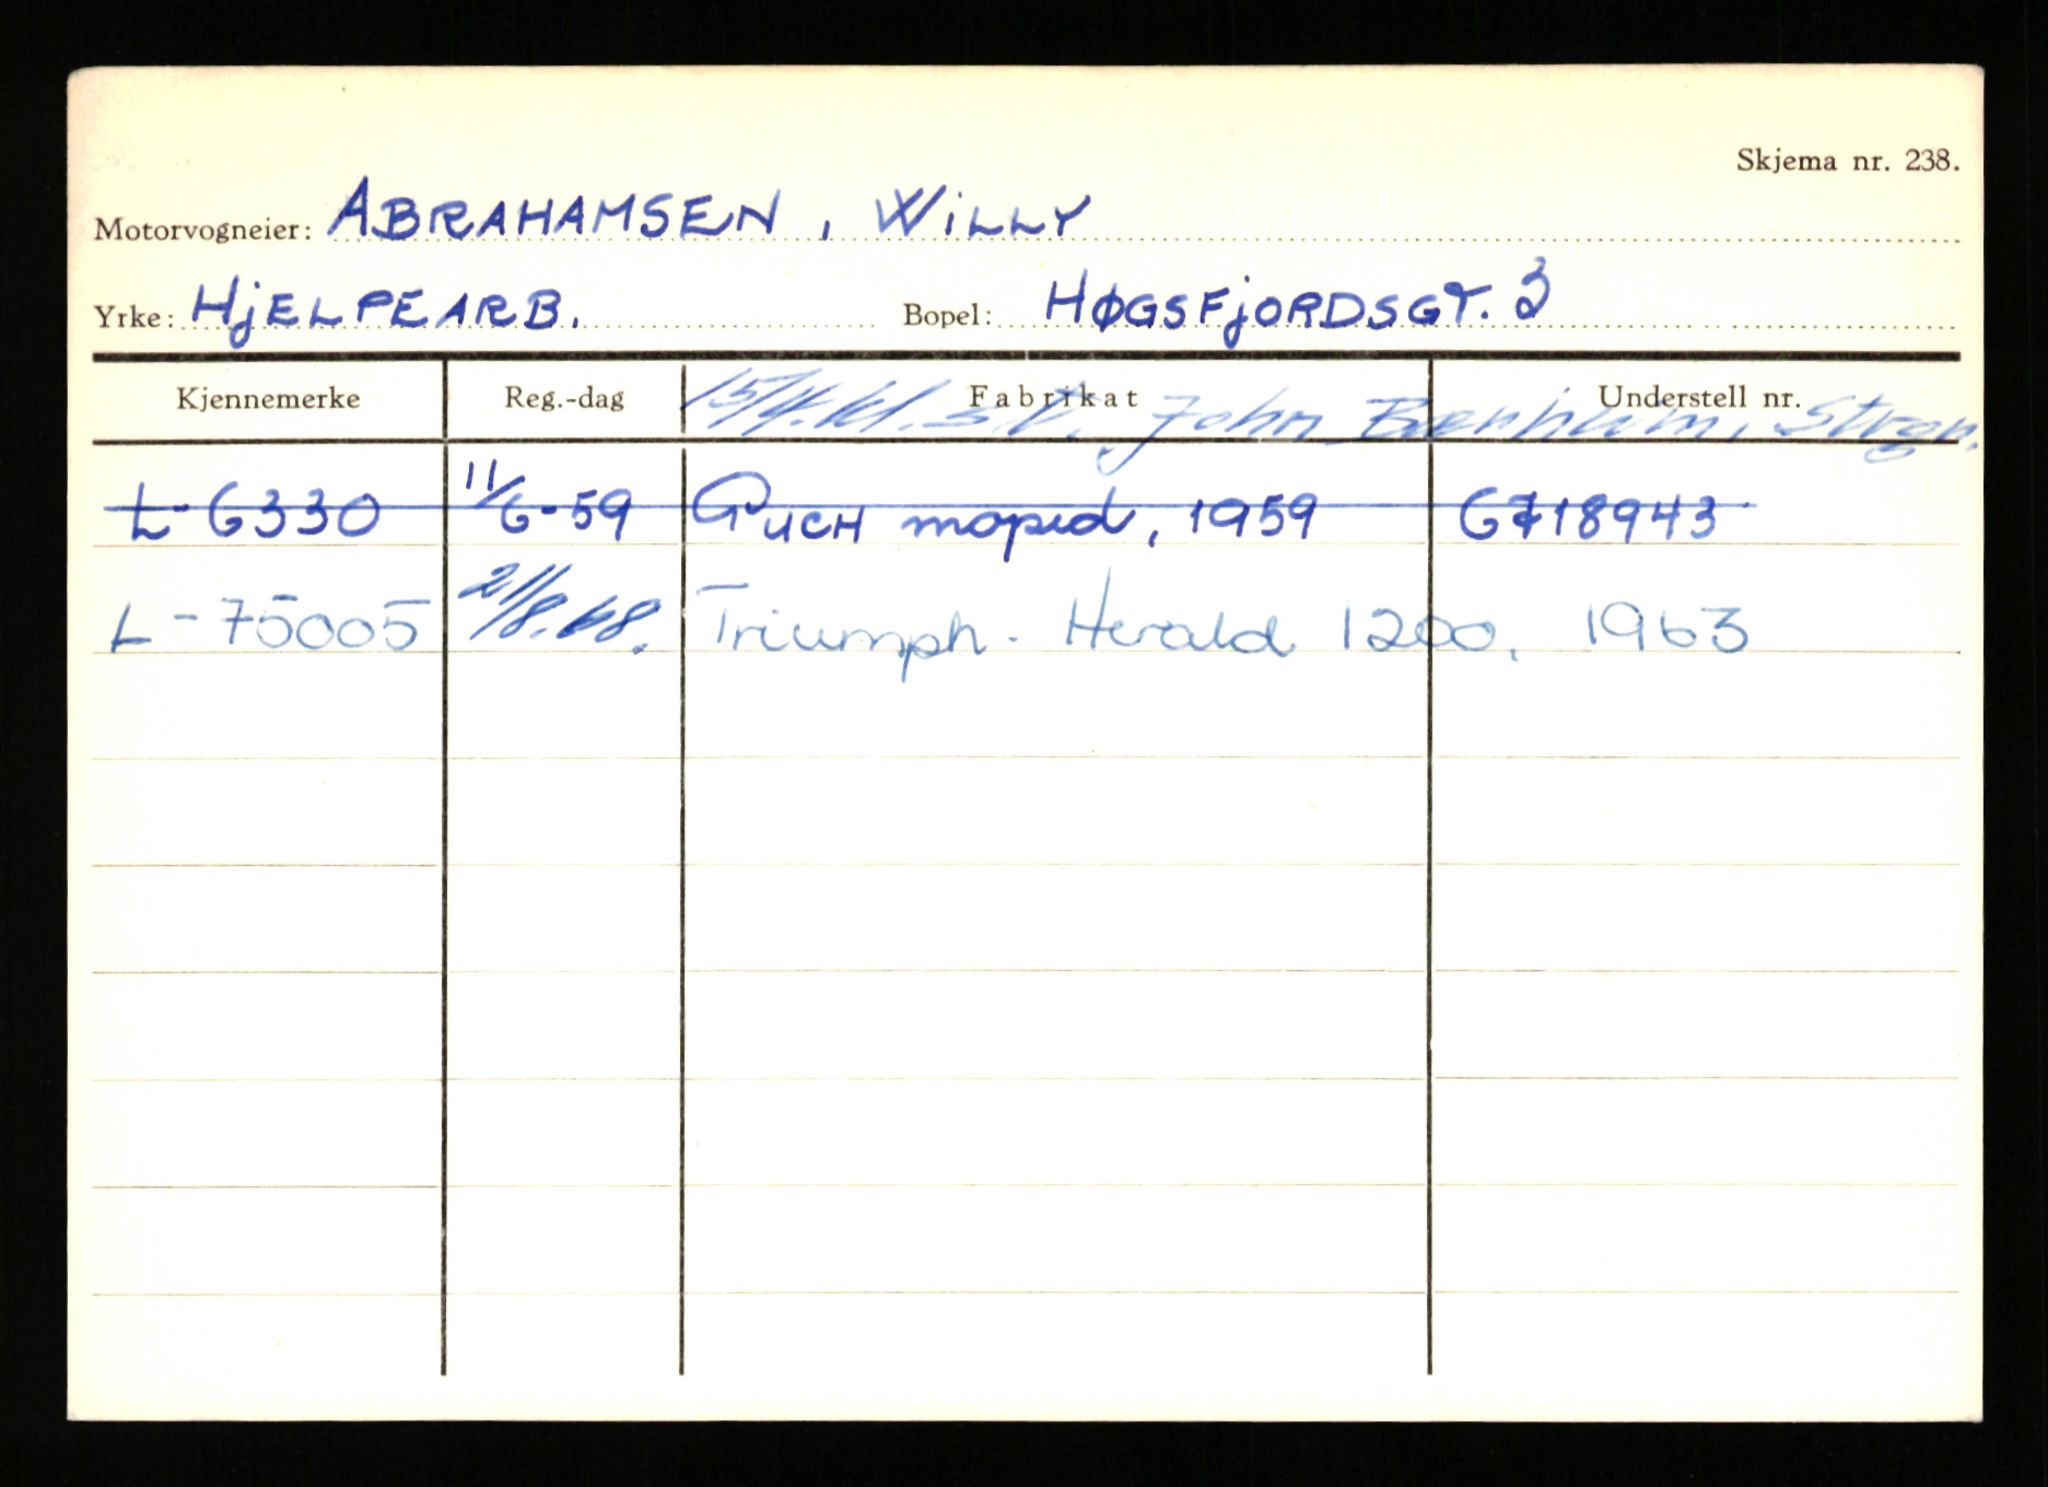 Skjema nr. 238.
Motorvogneier: ABRAHAMSEN, WILLY
Yrke: HjELPEARB. Bopel: HØGSFjORDSGT. 3
Kjennemerke Reg.-dag Fabrikat Understell nr.
15/4.61. s.t. John
L-6330 11/6-59 PUCH moped, 1959 6718943
L-75005 21/8.68. Triumph. Herald 1200, 1963